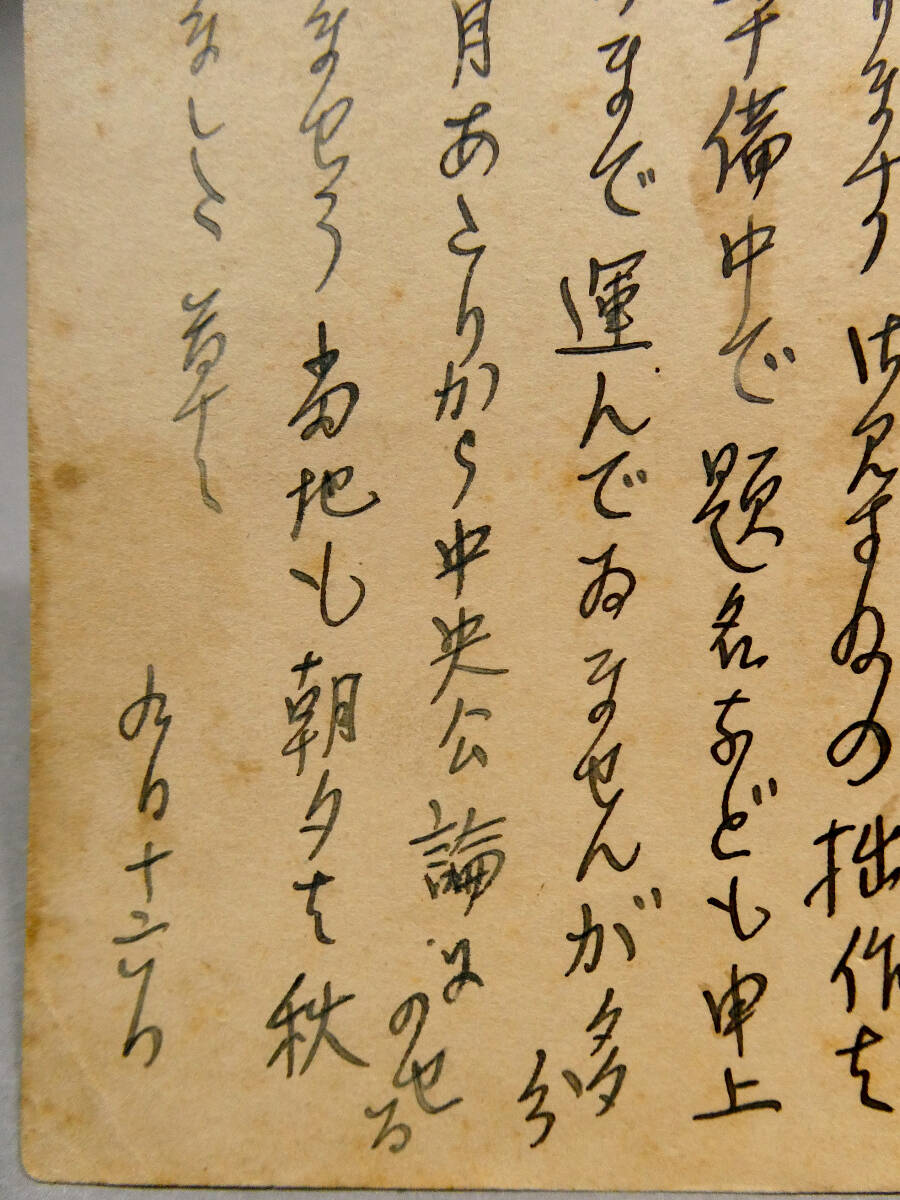 ります 御見するの拙作は
準備中で題名なども申上
まで運んでゐませんが多分
月あたりから中央公論によのせる
ませう 当地も朝夕は秋
ました 草々
九日十二日